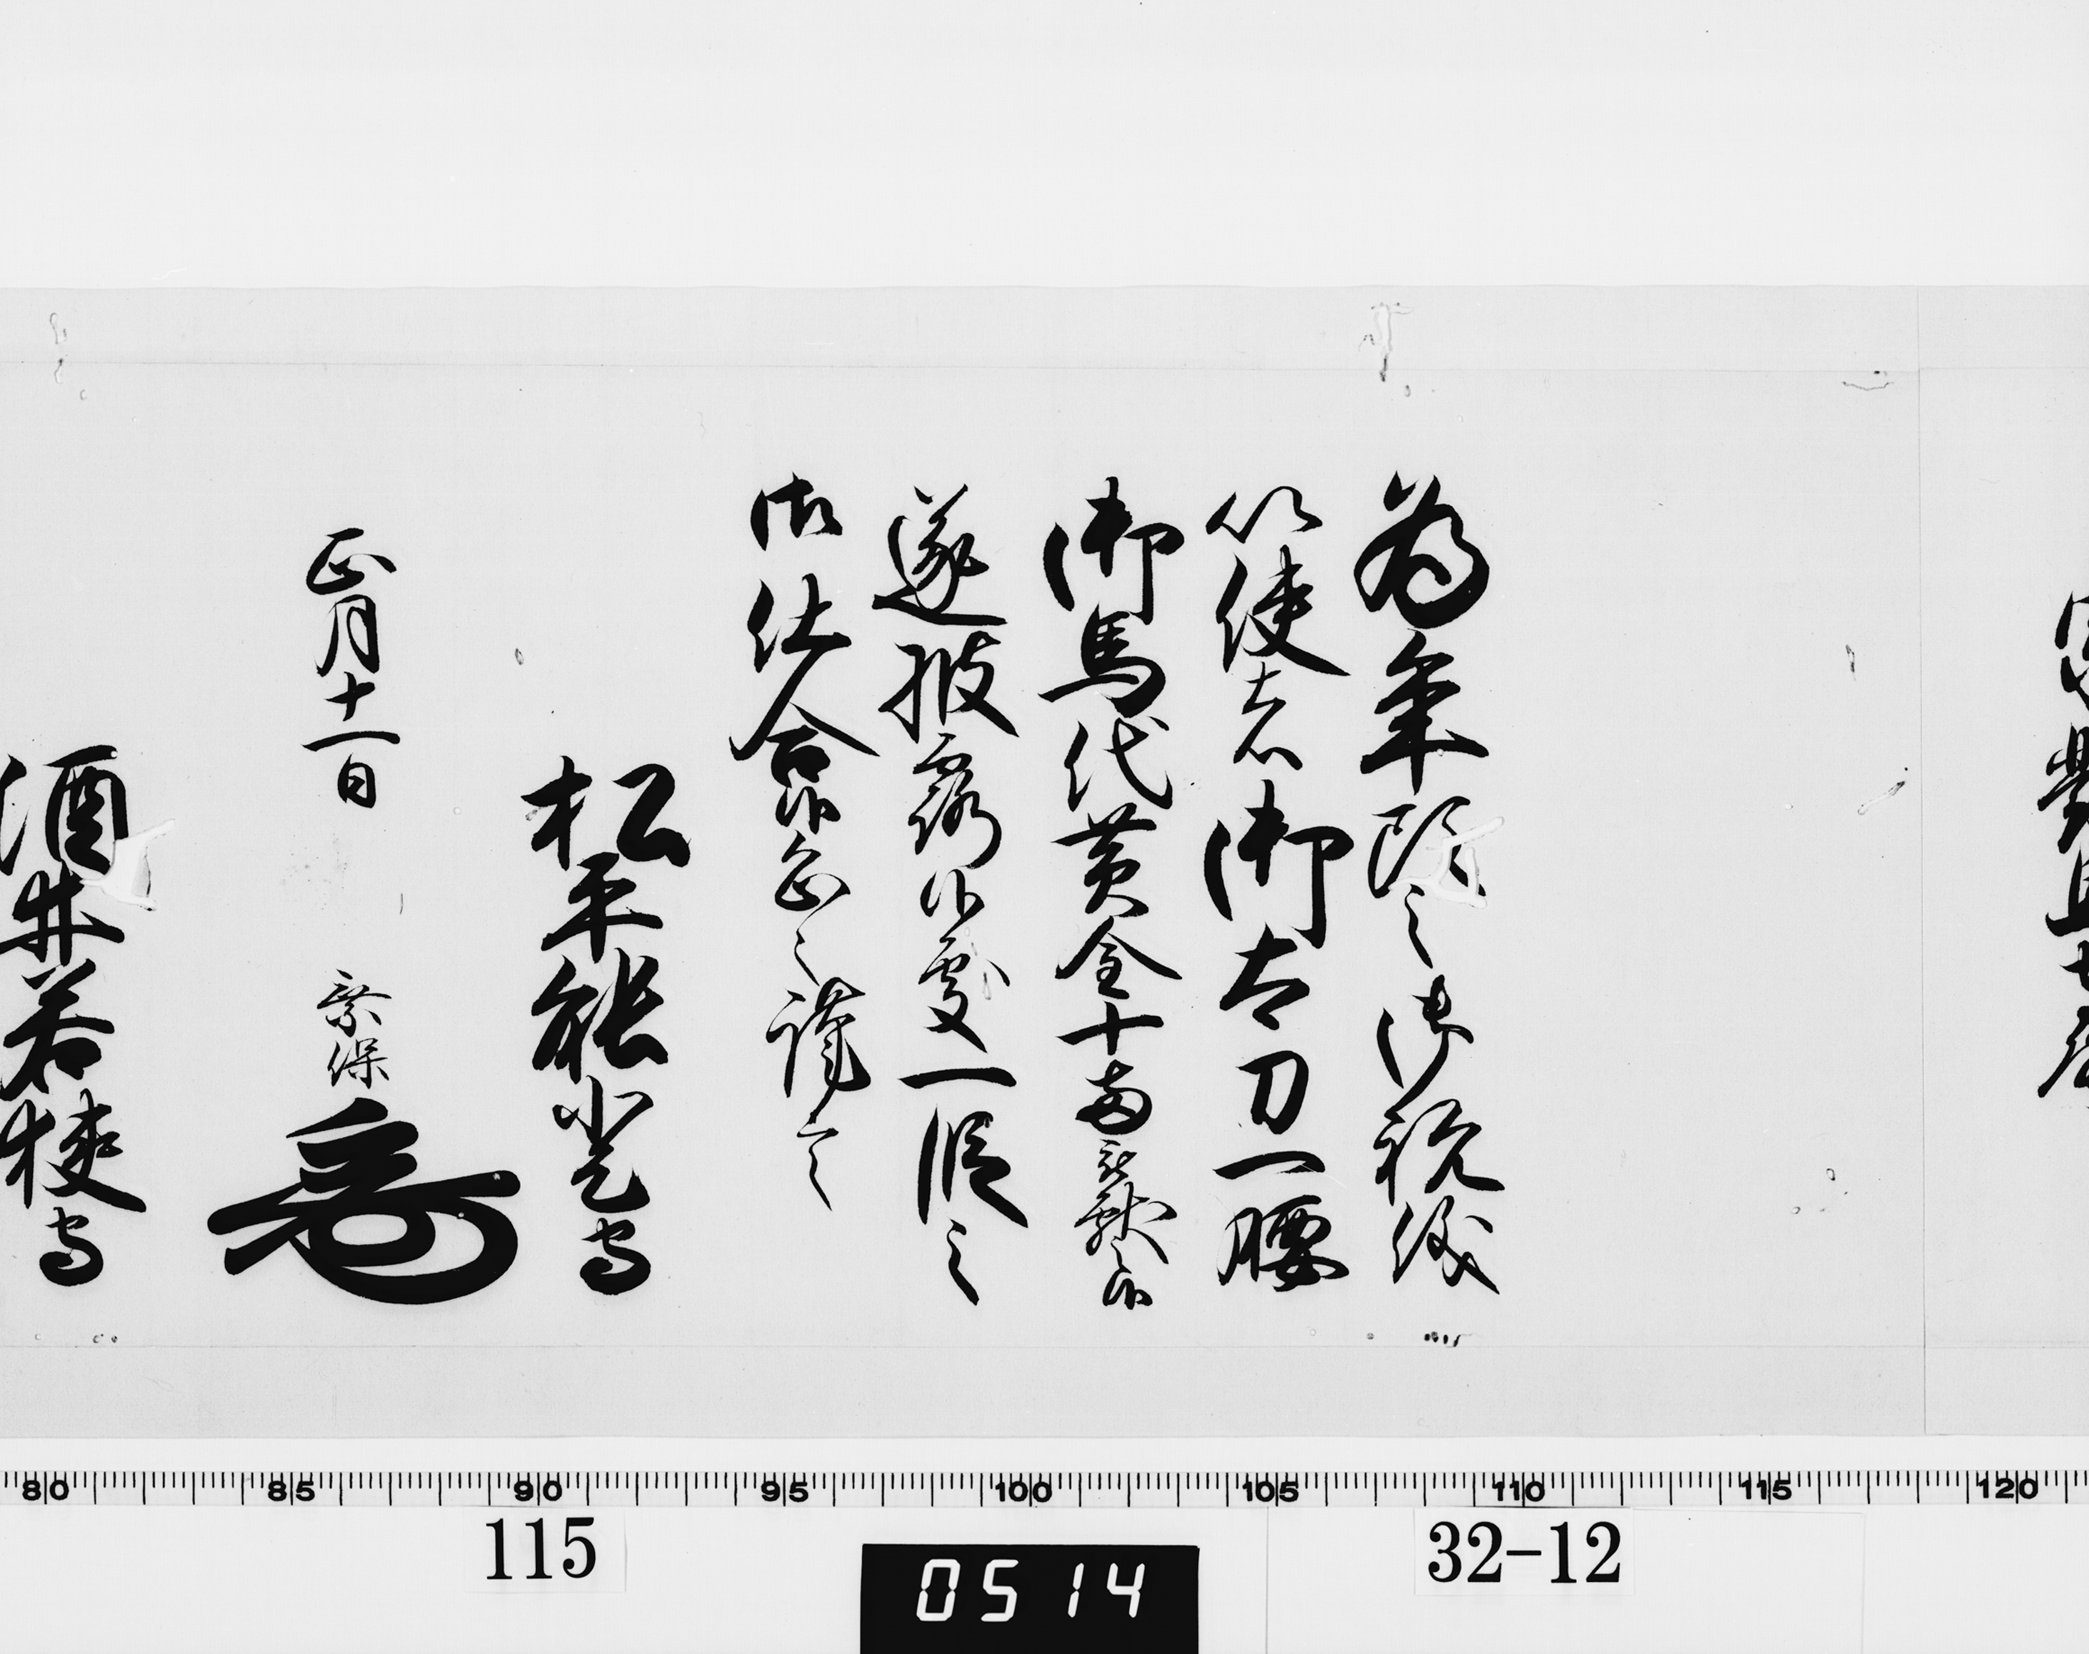 為年頭之御祝儀
以使者御太刀一腰
御馬代黄金十両被献之候
遂披露候處一段之
御仕合候恐々謹言
松平能登守
正月十一日 乗保
酒井若狭守
80 85 90 95 100 105 110 115 120
115
0514
32-12